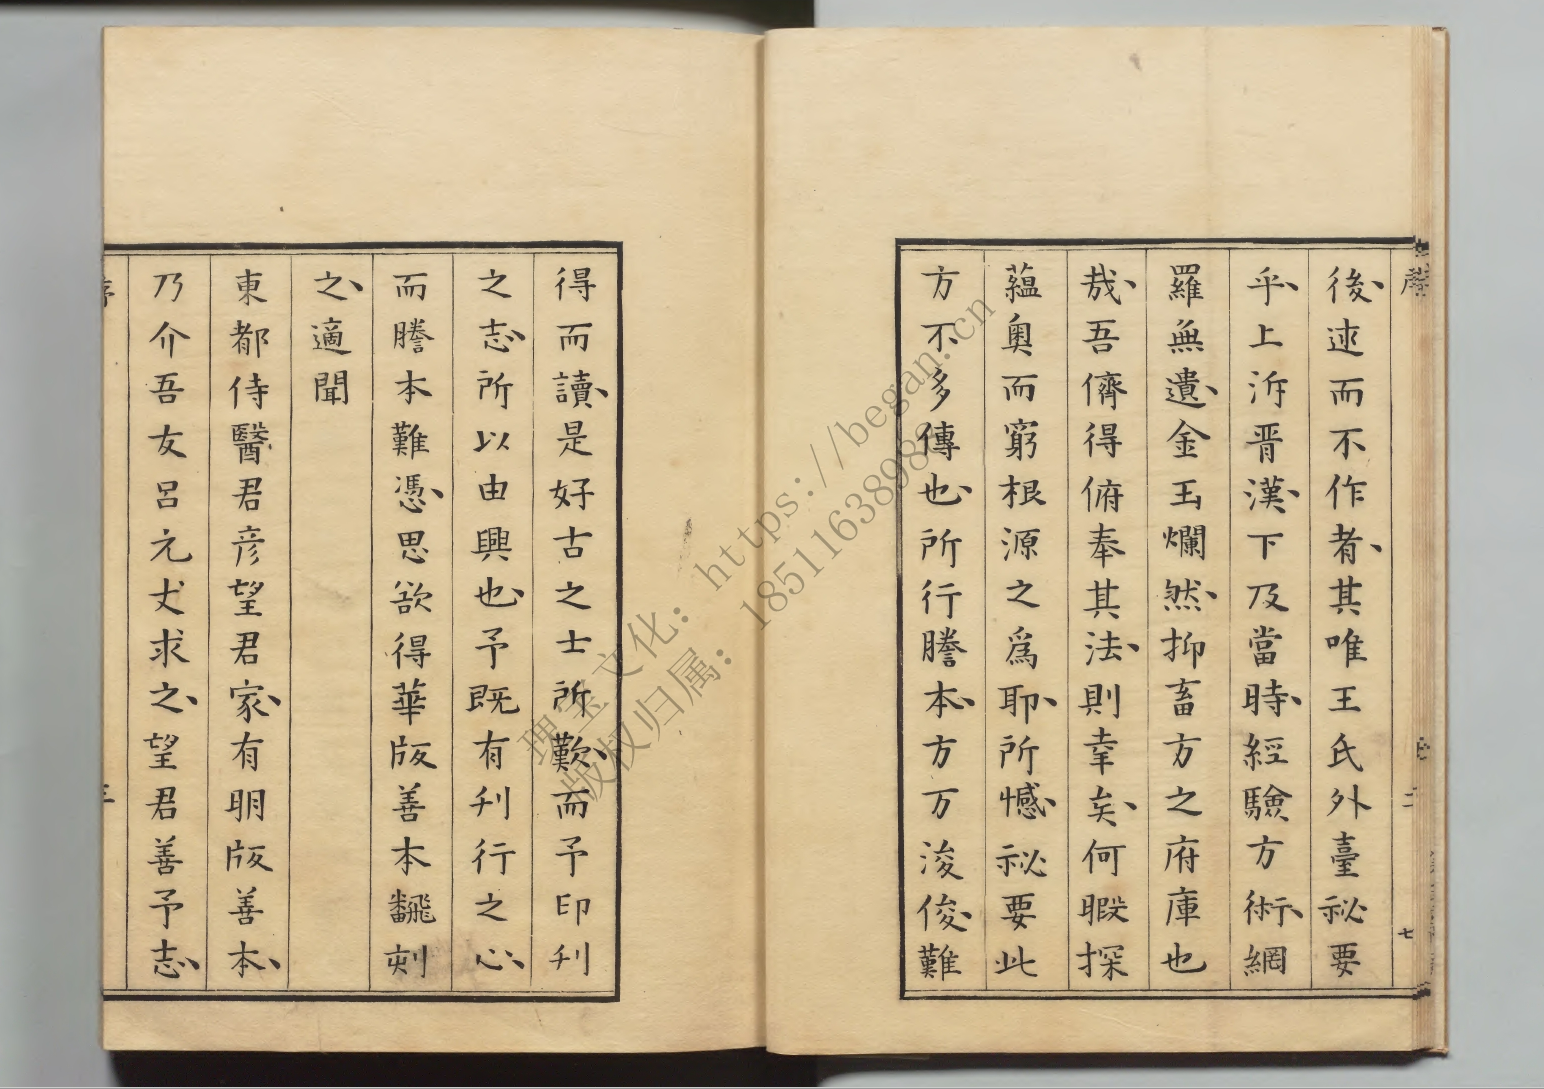 後逑而不作者其唯王氏外臺祕要
乎上泝晋漢下及當時經驗方術網
羅無遺金玉爛然抑畜方之府庫也
哉吾儕得俯奉其法則幸矣何暇探
蘊奧而窮根源之爲耶所憾祕要此
方不多傳也所行謄本方万浚俊難
得而讀是好古之士所歎而予印刋
之志所以由興也予既有刋行之心
而謄本難憑思欲得華版善本飜刻
之適聞
東都侍醫君彦望君家有明版善本
乃介吾友呂元丈求之望君善予志
瑰宝文化：https://began.cn
版权归属：18511638989